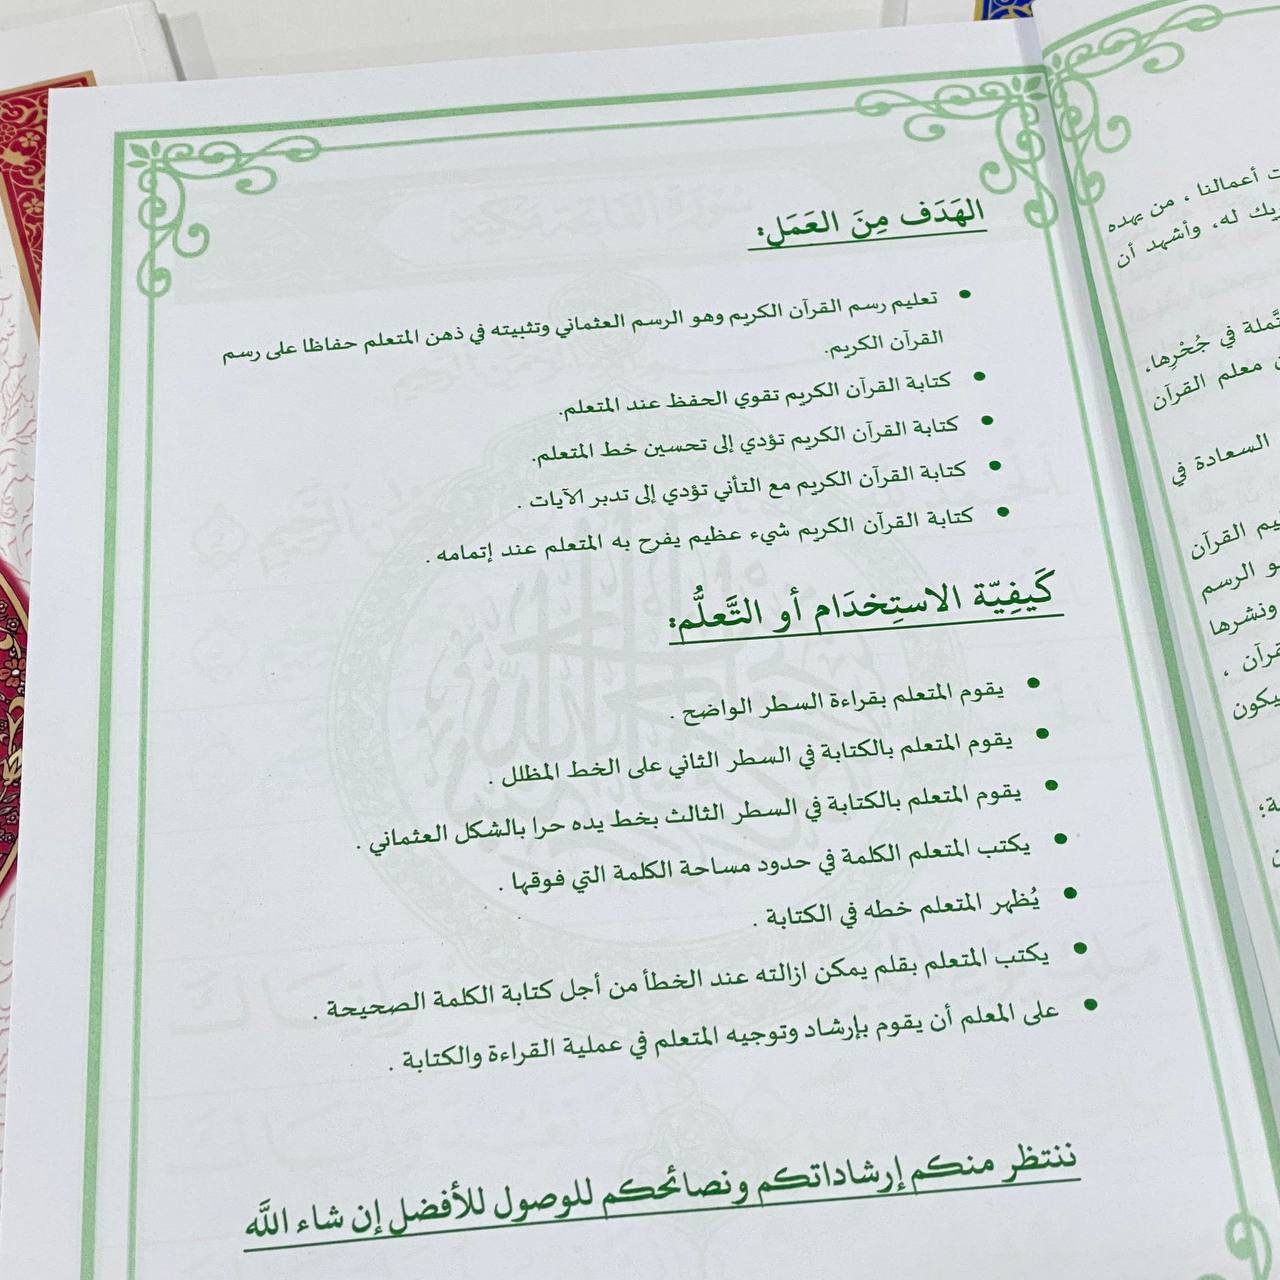 الهَدَف مِنَ العَمَل:
• تعليم رسم القرآن الكريم وهو الرسم العثماني وتثبيته في ذهن المتعلم حفاظا على رسم
القرآن الكريم.
• كتابة القرآن الكريم تقوي الحفظ عند المتعلم.
• كتابة القرآن الكريم تؤدي إلى تحسين خط المتعلم.
• كتابة القرآن الكريم مع التأني تؤدي إلى تدبر الآيات .
• كتابة القرآن الكريم شيء عظيم يفرح به المتعلم عند إتمامه .
كَيفِيّة الاستِخدَام أو التَّعلُّم:
• يقوم المتعلم بقراءة السطر الواضح .
• يقوم المتعلم بالكتابة في السطر الثاني على الخط المظلل .
• يقوم المتعلم بالكتابة في السطر الثالث بخط يده حرا بالشكل العثماني .
• يكتب المتعلم الكلمة في حدود مساحة الكلمة التي فوقها .
• يُظهر المتعلم خطه في الكتابة .
• يكتب المتعلم بقلم يمكن ازالته عند الخطأ من أجل كتابة الكلمة الصحيحة .
• على المعلم أن يقوم بإرشاد وتوجيه المتعلم في عملية القراءة والكتابة .
ننتظر منكم إرشاداتكم ونصائحكم للوصول للأفضل إن شاء اللَّه
أعمالنا ، من يهده
له، وأشهد أن
في جُحْرِها،
معلم القرآن
السعادة في
القرآن
الرسم
ونشرها